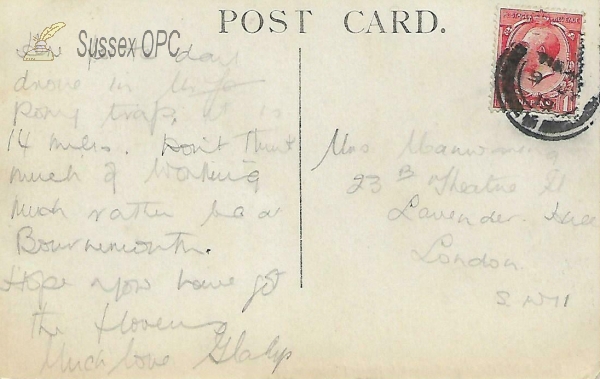 POST CARD.
Sussex OPC
for the day
drove in
Pony trap, it is
14 miles. Don't think
much of Worthing
Much rather be at
Bournemouth.
Hope you have got
the flowers
Much love Gladys
Mrs Manwaring
23B Theatre St
Lavender Hill
London
S.W.11